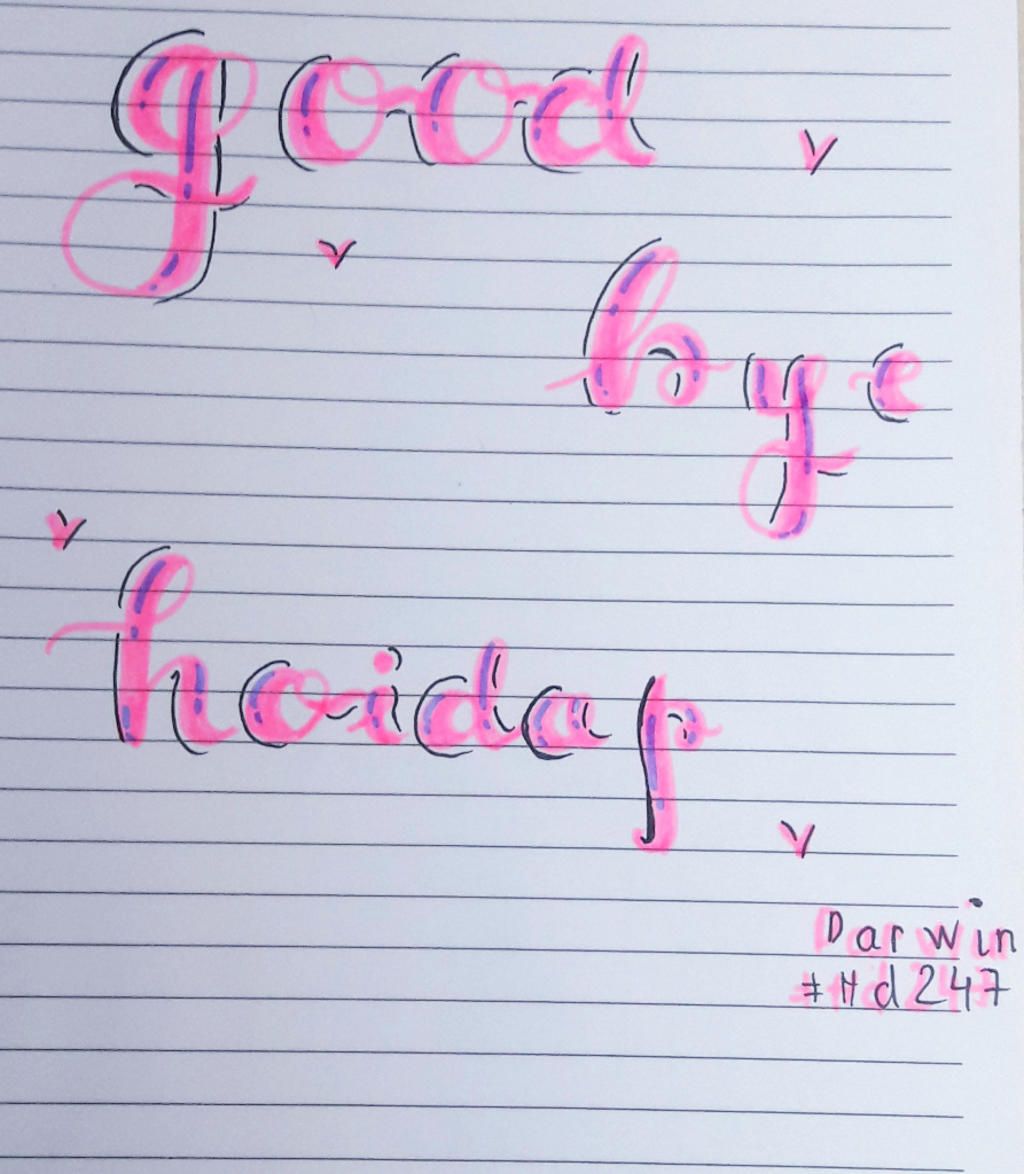 good
bye
hoidap
Darwin
#Hd247